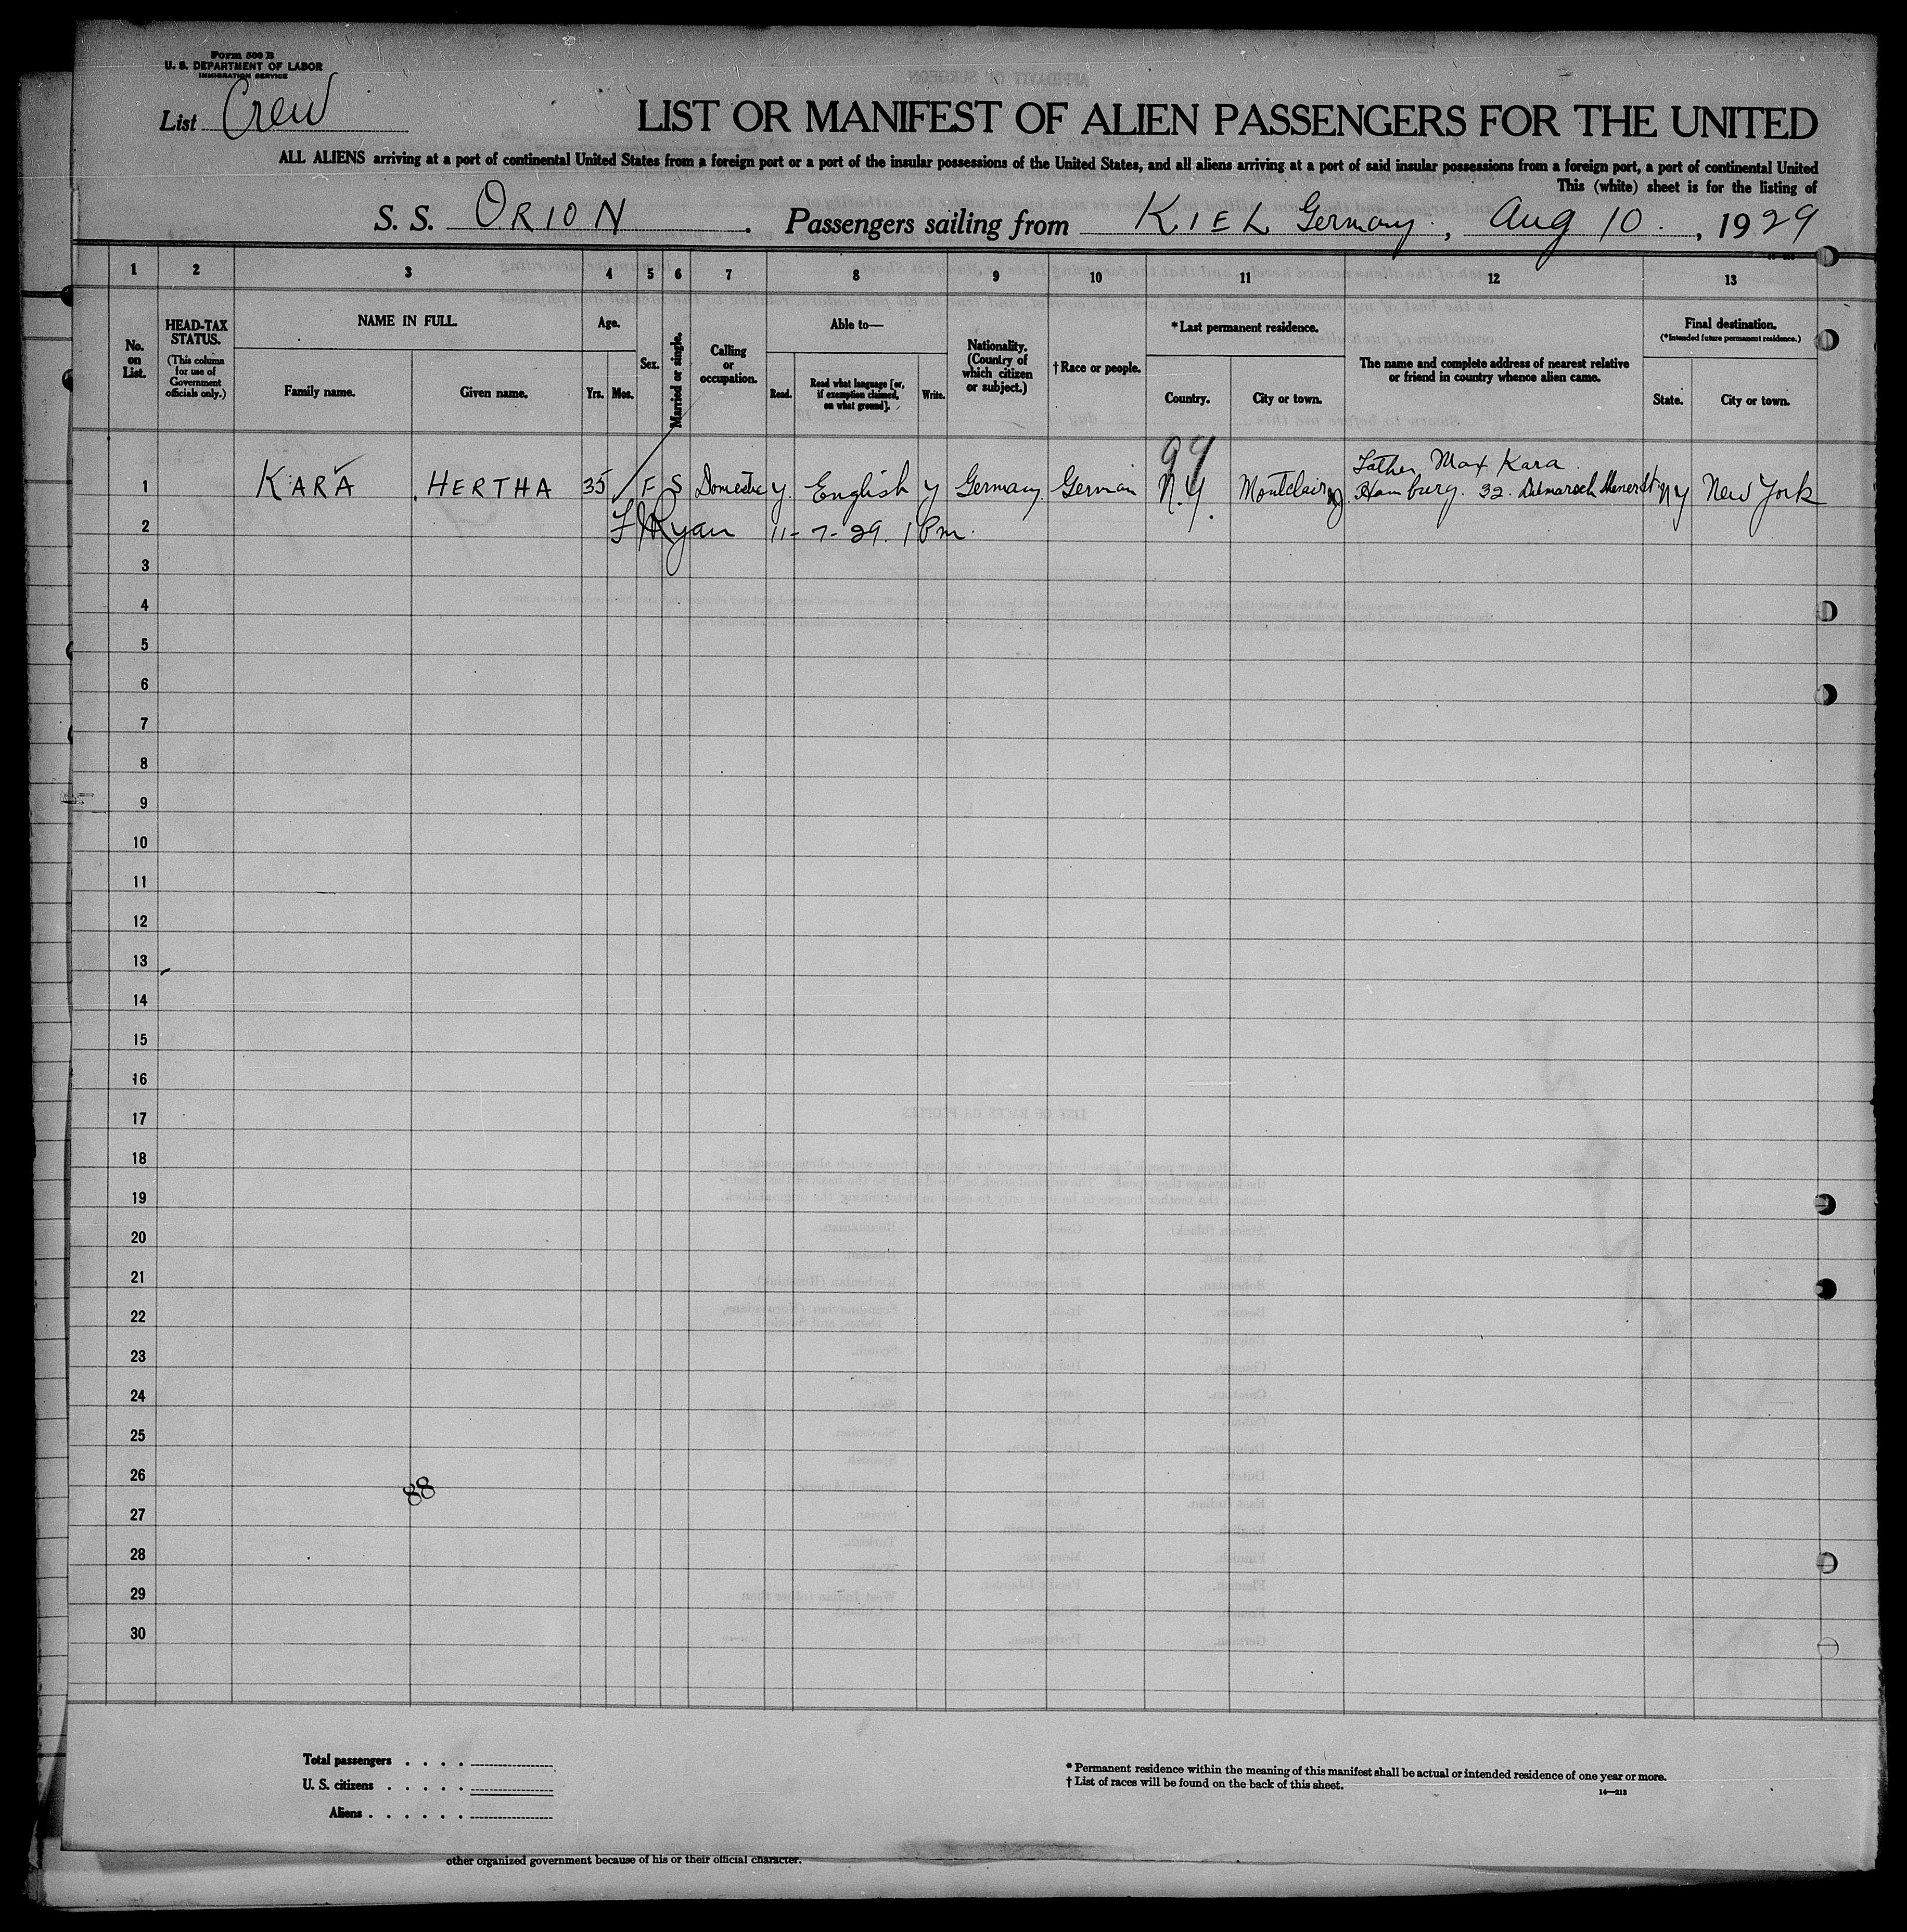 Form 500 B
U. S. DEPARTMENT OF LABOR
IMMIGRATION SERVICE
List Crew
LIST OR MANIFEST OF ALIEN PASSENGERS FOR THE UNITED
ALL ALIENS arriving at a port of continental United States from a foreign port or a port of the insular possessions of the United States, and all aliens arriving at a port of said insular possessions from a foreign port, a port of continental United
This (white) sheet is for the listing of
S. S. ORION. Passengers sailing from KIEL Germany, Aug 10., 1929
1 2 3 4 5 6 7 8 9 10 11 12 13
No. on List.
HEAD-TAX STATUS.
(This column for use of Government officials only.)
NAME IN FULL.
Family name.
Given name.
Age.
Yrs. Mos.
Sex.
Married or single.
Calling or occupation.
Able to—
Read.
Read what language [or, if exemption claimed, on what ground].
Write.
Nationality. (Country of which citizen or subject.)
†Race or people.
*Last permanent residence.
Country.
City or town.
The name and complete address of nearest relative or friend in country whence alien came.
Final destination.
(*Intended future permanent residence.)
State.
City or town.
99
Father, Max Kara.
1 KARA HERTHA 35 F S Domestic y. English y Germany German N.Y. Montclair Hamburg. 32. NY New York
2 Ryan 11-7-29. 1 Pm.
3
4
5
6
7
8
9
10
11
12
13
14
15
16
17
18
19
20
21
22
23
24
25
26
88
27
28
29
30
Total passengers . . . .
U. S. citizens . . . . .
Aliens . . . . . .
* Permanent residence within the meaning of this manifest shall be actual or intended residence of one year or more.
† List of races will be found on the back of this sheet.
14—213
other organized government because of his or their official character.